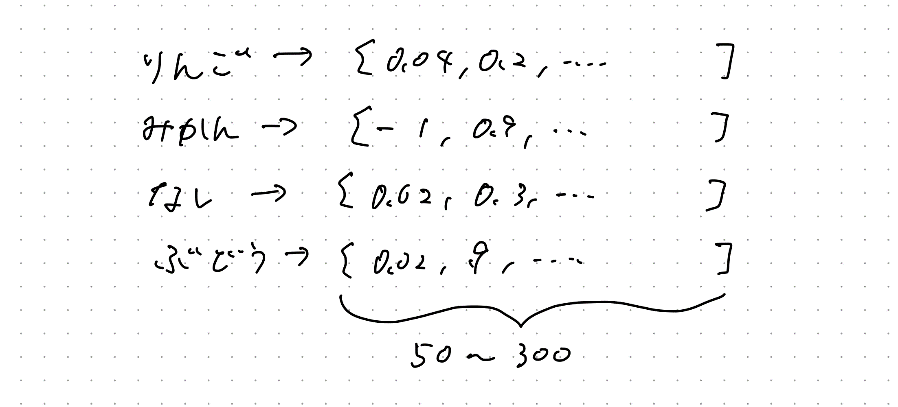 りんご → [ 0.04, 0.2, ‥‥ ]
みかん → [ - 1, 0.9, … ]
なし → [ 0.02, 0.3, … ]
ぶどう → [ 0.02, 9, ‥‥ ]
50 〜 300